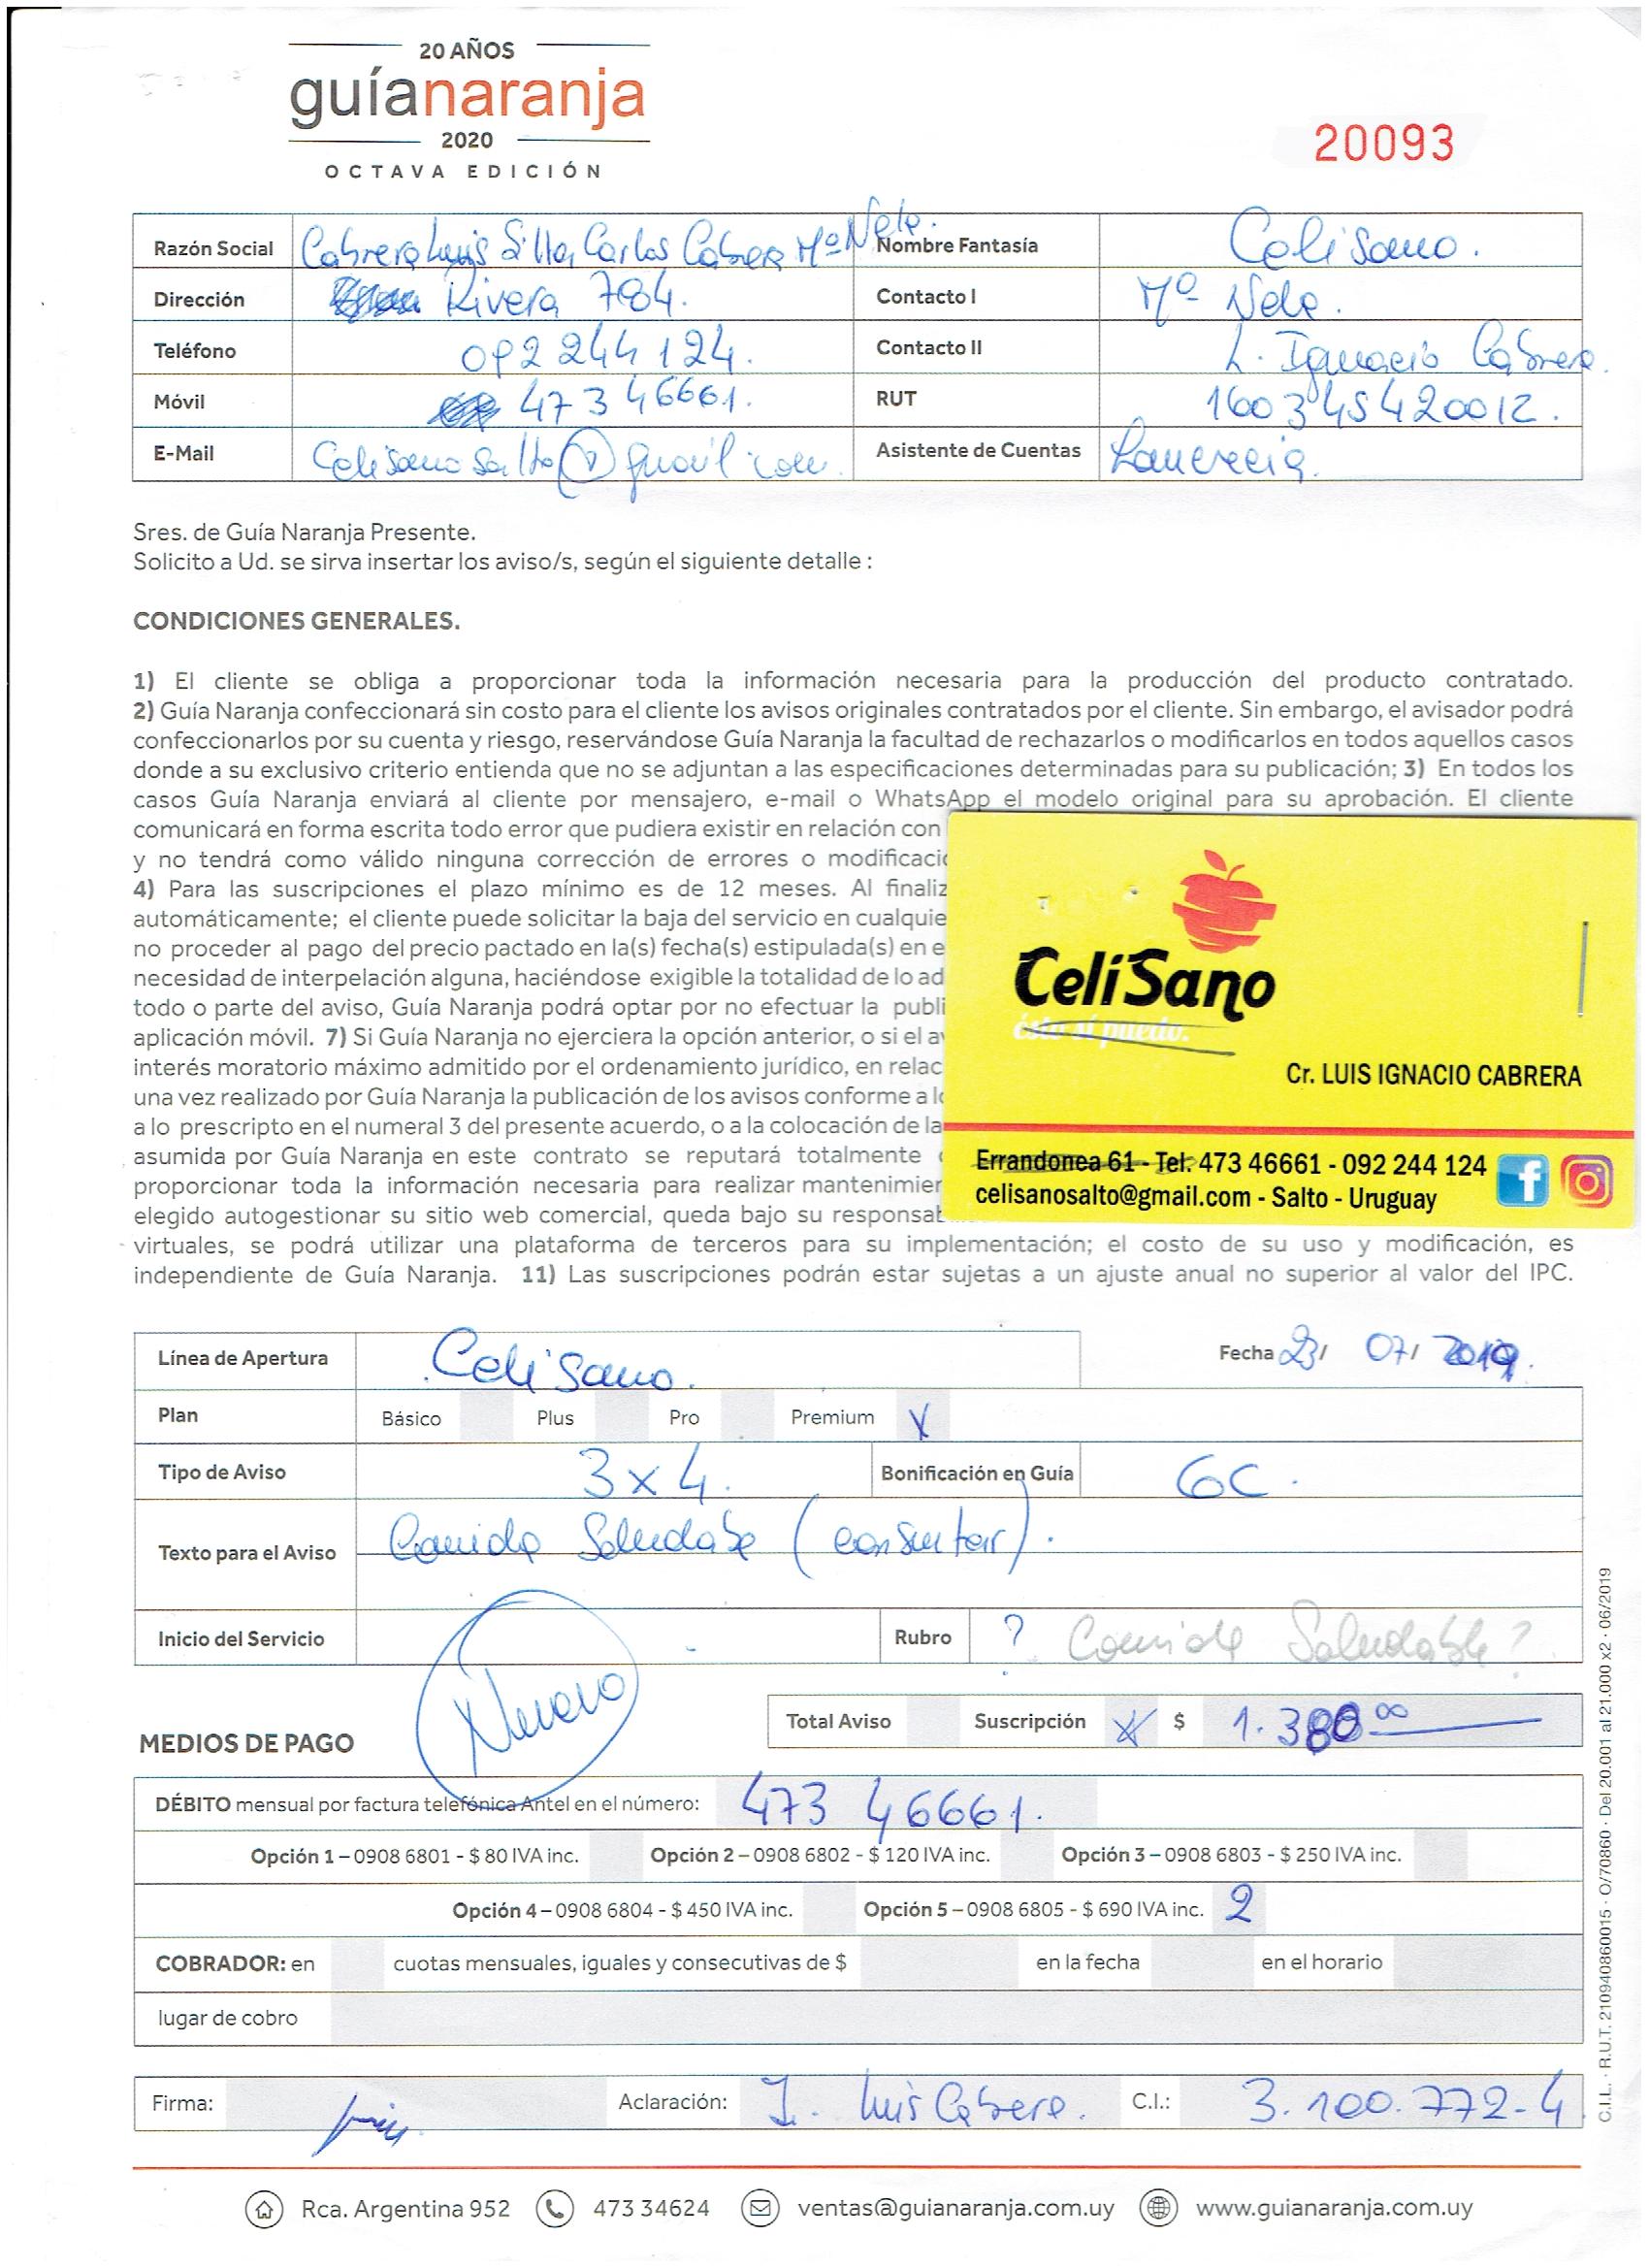 20 AÑOS
guíanaranja
2020
OCTAVA EDICIÓN
20093
Razón Social Cabrera Luis Silla, Carlos Cabrera Mª Nela. Nombre Fantasía Celisano.
Dirección Rivera 784. Contacto I Mª Nela.
Teléfono 092 244 124. Contacto II L. Ignacio Cabrera.
Móvil 473 46661. RUT 160034542 0012.
E-Mail Celisanosalto@gmail.com. Asistente de Cuentas
Sres. de Guía Naranja Presente.
Solicito a Ud. se sirva insertar los aviso/s, según el siguiente detalle :
CONDICIONES GENERALES.
1) El cliente se obliga a proporcionar toda la información necesaria para la producción del producto contratado.
2) Guía Naranja confeccionará sin costo para el cliente los avisos originales contratados por el cliente. Sin embargo, el avisador podrá
confeccionarlos por su cuenta y riesgo, reservándose Guía Naranja la facultad de rechazarlos o modificarlos en todos aquellos casos
donde a su exclusivo criterio entienda que no se adjuntan a las especificaciones determinadas para su publicación; 3) En todos los
casos Guía Naranja enviará al cliente por mensajero, e-mail o WhatsApp el modelo original para su aprobación. El cliente
comunicará en forma escrita todo error que pudiera existir en relación con
y no tendrá como válido ninguna corrección de errores o modificaci
4) Para las suscripciones el plazo mínimo es de 12 meses. Al finaliz
automáticamente; el cliente puede solicitar la baja del servicio en cualquie
no proceder al pago del precio pactado en la(s) fecha(s) estipulada(s) en e
necesidad de interpelación alguna, haciéndose exigible la totalidad de lo ad
todo o parte del aviso, Guía Naranja podrá optar por no efectuar la publi
aplicación móvil. 7) Si Guía Naranja no ejerciera la opción anterior, o si el a
interés moratorio máximo admitido por el ordenamiento jurídico, en relac
una vez realizado por Guía Naranja la publicación de los avisos conforme a l
a lo prescripto en el numeral 3 del presente acuerdo, o a la colocación de la
asumida por Guía Naranja en este contrato se reputará totalmente
proporcionar toda la información necesaria para realizar mantenimier
elegido autogestionar su sitio web comercial, queda bajo su responsa
virtuales, se podrá utilizar una plataforma de terceros para su implementación; el costo de su uso y modificación, es
independiente de Guía Naranja. 11) Las suscripciones podrán estar sujetas a un ajuste anual no superior al valor del IPC.
CeliSano
ésto sí puedo.
Cr. LUIS IGNACIO CABRERA
Errandonea 61 - Tel. 473 46661 - 092 244 124
celisanosalto@gmail.com - Salto - Uruguay
Línea de Apertura Celisano. Fecha 23/ 07/ 2019.
Plan Básico Plus Pro Premium X
Tipo de Aviso 3x4. Bonificación en Guía 6C.
Texto para el Aviso Comida Saludable (consultar).
Inicio del Servicio Rubro ? Comida Saludable?
Nuevo
Total Aviso Suscripción X $ 1.380 00
MEDIOS DE PAGO
DÉBITO mensual por factura telefónica Antel en el número: 473 46661.
Opción 1 – 0908 6801 - $ 80 IVA inc. Opción 2 – 0908 6802 - $ 120 IVA inc. Opción 3 – 0908 6803 - $ 250 IVA inc.
Opción 4 – 0908 6804 - $ 450 IVA inc. Opción 5 – 0908 6805 - $ 690 IVA inc. 2
COBRADOR: en cuotas mensuales, iguales y consecutivas de $ en la fecha en el horario
lugar de cobro
Firma: Aclaración: I. Luis Cabrera. C.I.: 3.100.772-4
Rca. Argentina 952 473 34624 ventas@guianaranja.com.uy www.guianaranja.com.uy
C.I.L. · R.U.T. 210940860015 · O/70860 · Del 20.001 al 21.000 x2 · 06/2019